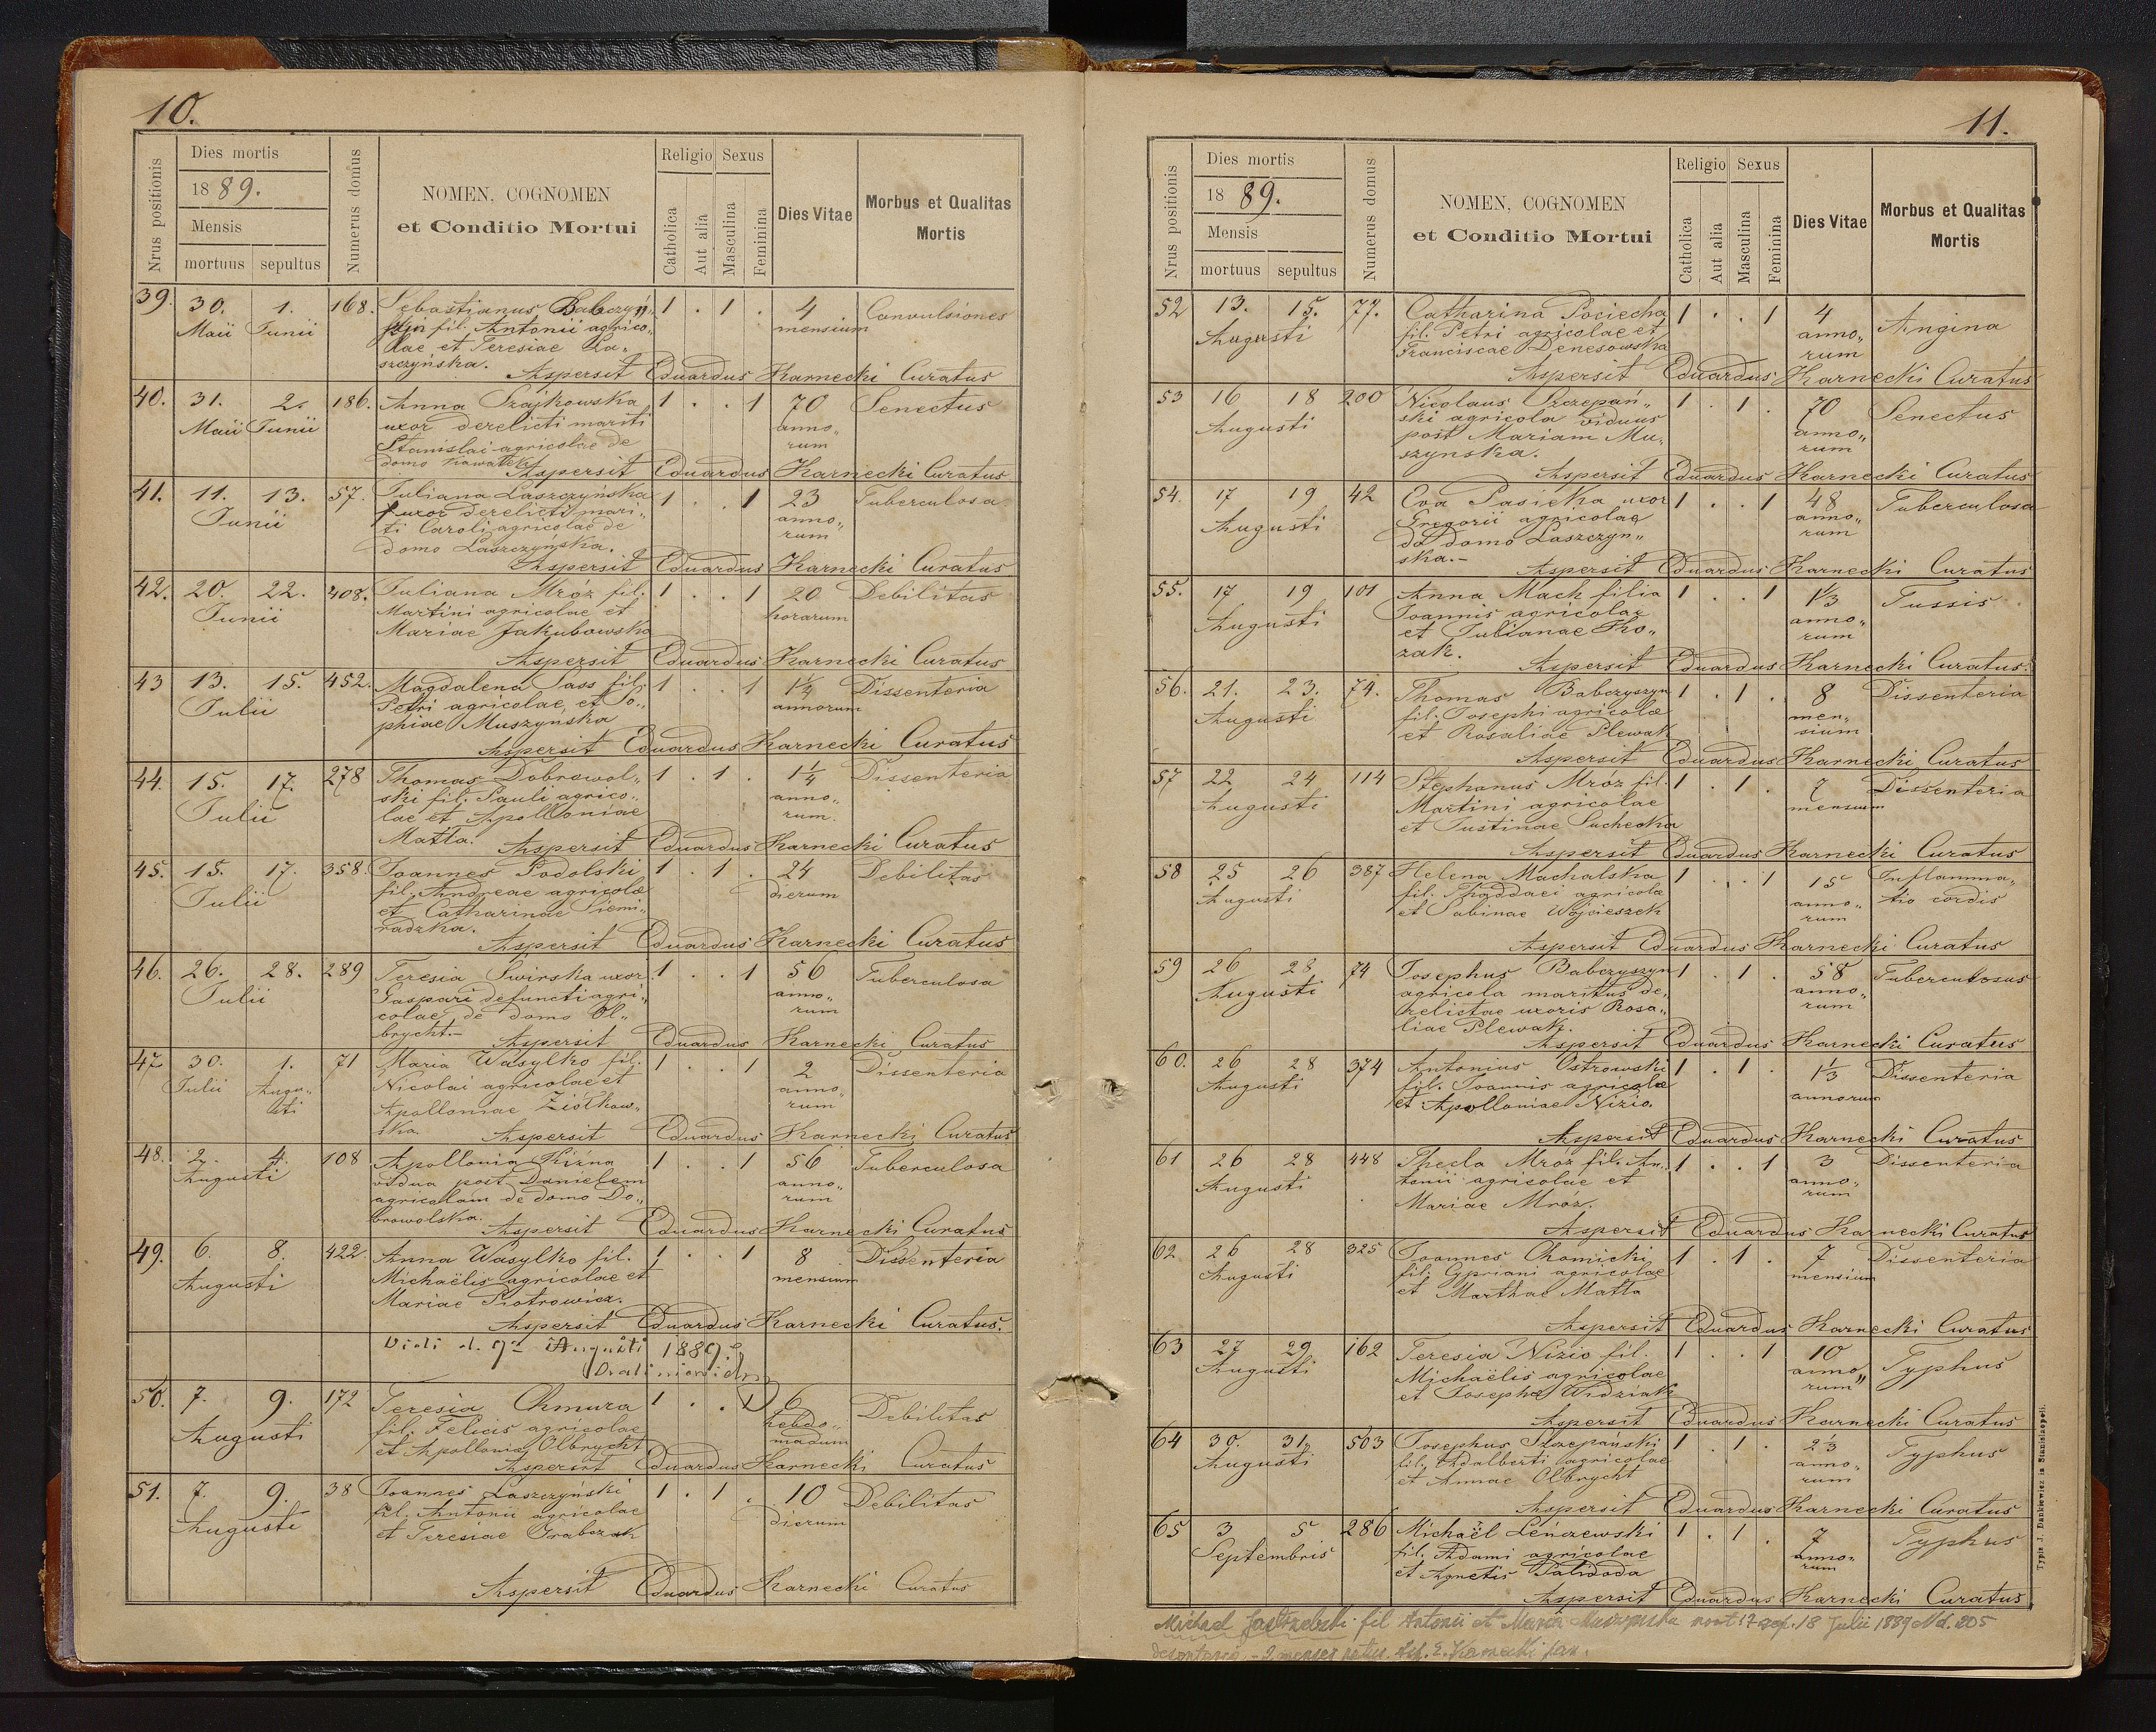 10.
Nrus positionis
Dies mortis
1889.
Mensis
mortuus sepultus
Numerus domus
NOMEN, COGNOMEN
et Conditio Mortui
Religio Sexus
Catholica
Aut alia
Masculina
Feminina
Dies Vitae
Morbus et Qualitas
Mortis
39. 30. 1. 168. Sebastianus Babczyn„ 1 . 1 . 4 Convulsiones
Maii Junii fil. Antonii agrico„ mensium
lae et Teresiae La„
szczyńska. Aspersit Eduardus Karnecki Curatus
40. 31. 2. 186. Anna Szajkowska 1 . . 1 70 Senectus
Maii Junii uxor derelicti mariti anno„
Stanislai agricolae de rum
domo Aspersit Eduardus Karnecki Curatus
41. 11. 13. 57. Juliana Laszczyńska 1 . . 1 23 Tuberculosa
Junii uxor derelicti mari„ anno„
ti Caroli agricolae de rum
domo Laszczyńska.
Aspersit Eduardus Karnecki Curatus
42. 20. 22. 408. Juliana Mróz fil. 1 . . 1 20 Debilitas
Junii Martini agricolae et horarum
Mariae Jakubowska
Aspersit Eduardus Karnecki Curatus
43 13. 15. 452. Magdalena Sass fil. 1 . . 1 1¼ Dissenteria
Julii Petri agricolae et So„ annorum
phiae Muszyńska
Aspersit Eduardus Karnecki Curatus
44. 15. 17. 278 Thomas Dobrowol„ 1 . 1 . 1¼ Dissenteria
Julii ski fil. Pauli agrico„ anno„
lae et Apolloniae rum.
Matta. Aspersit Eduardus Karnecki Curatus
45. 15. 17. 358. Joannes Podolski 1 . 1 . 24 Debilitas
Julii fil. Andreae agricolae dierum
et Catharinae Siemi„
radzka.
Aspersit Eduardus Karnecki Curatus
46. 26. 28. 289 Teresia Swirska uxor 1 . . 1 56 Tuberculosa
Julii Gaspari defuncti agri„ anno„
colae de domo Ol„ rum
brycht.- Aspersit Eduardus Karnecki Curatus
47 30. 1. 71 Maria Wasylko fil. 1 . . 1 2 Dissenteria
Julii Augu„ Nicolai agricolae et anno„
sti Apolloniae Ziółkow„ rum
ska. Aspersit Eduardus Karnecki Curatus
48. 2. 4. 108 Apollonia Kiżna 1 . . 1 56 Tuberculosa
Augusti vidua post Danielem anno„
agricolam de domo Do„ rum
browolska. Aspersit Eduardus Karnecki Curatus
49. 6. 8. 422. Anna Wasylko fil. 1 . . 1 8 Dissenteria
Augusti Michaëlis agricolae et mensium
Mariae Piotrowicz.
Aspersit Eduardus Karnecki Curatus.
Vidi d. 9 Augusti 1889.
50. 7. 9. 172 Teresia Chmura 1 . . 1 6 Debilitas
Augusti fil. Felicis agricolae hebdo„
et Apolloniae Olbrycht madum
Aspersit Eduardus Karnecki Curatus
51. 7. 9. 38 Joannes Laszczyński 1 . 1 . 10 Debilitas
Augusti fil. Antonii agricolae dierum
et Teresiae Grabczak
Aspersit Eduardus Karnecki Curatus
11.
Nrus positionis
Dies mortis
1889.
Mensis
mortuus sepultus
Numerus domus
NOMEN, COGNOMEN
et Conditio Mortui
Religio Sexus
Catholica
Aut alia
Masculina
Feminina
Dies Vitae
Morbus et Qualitas
Mortis
52 13. 15. 77. Catharina Pociecha 1 . . 1 4 Angina
Augusti fil. Petri agricolae et anno„
Franciscae Denesowska rum
Aspersit Eduardus Karnecki Curatus
53 16 18 200 Nicolaus Szczepań„ 1 . 1 . 70 Senectus
Augusti ski agricola viduus anno„
post Mariam Mu„ rum
szynska.
Aspersit Eduardus Karnecki Curatus
54. 17 19 42 Eva Pasieka uxor 1 . . 1 48 Tuberculosa
Augusti Gregorii agricolae anno„
de domo Laszczyn„ rum
ska.- Aspersit Eduardus Karnecki Curatus
55. 17 19 101 Anna Mach filia 1 . . 1 1⅓ Tussis
Augusti Joannis agricolae anno„
et Julianae Ko„ rum
zak. Aspersit Eduardus Karnecki Curatus.
56. 21. 23. 74. Thomas Babczyszyn 1 . 1 . 8 Dissenteria
Augusti fil. Josephi agricolae men„
et Rosaliae Plewak sium
Aspersit Eduardus Karnecki Curatus
57 22 24 114 Stephanus Mróz fil. 1 . 1 . 7 Dissenteria
Augusti Martini agricolae mensium
et Justinae Suchecka
Aspersit Eduardus Karnecki Curatus
58 25 26 387 Helena Machalska 1 . . 1 15 Inflamma„
Augusti fil. Thaddaei agricolae anno„ tio cordis
et Sabinae Wojcieszek rum
Aspersit Eduardus Karnecki Curatus
59 26 28 74 Josephus Babczyszyn 1 . 1 . 58 Tuberculosus
Augusti agricola maritus de„ anno„
relictae uxoris Rosa„ rum
liae Plewak.
Aspersit Eduardus Karnecki Curatus
60. 26 28 374 Antonius Ostrowski 1 . 1 . 1⅓ Dissenteria
Augusti fil. Joannis agricolae annorum
et Apolloniae Nizio.
Aspersit Eduardus Karnecki Curatus
61 26 28 448 Thecla Mróz fil. An„ 1 . . 1 3 Dissenteria
Augusti tonii agricolae et anno„
Mariae Mróz. rum
Aspersit Eduardus Karnecki Curatus
62. 26 28 325 Joannes Chomicki 1 . 1 . 7 Dissenteria
Augusti fil. Cypriani agricolae mensium
et Marthae Matta
Aspersit Eduardus Karnecki Curatus
63 27 29 162 Teresia Nizio fil. 1 . . 1 10 Typhus
Augusti Michaëlis agricolae anno„
et Josephae Widziak rum
Aspersit Eduardus Karnecki Curatus
64 30. 31. 503 Josephus Szczepański 1 . 1 . 2⅓ Typhus
Augusti fil. Adalberti agricolae anno„
et Annae Olbrycht rum
Aspersit Eduardus Karnecki Curatus
65 3 5 286 Michaël Leńczewski 1 . 1 . 7 Typhus
Septembris fil. Adami agricolae anno„
et Agnetis rum
Aspersit Eduardus Karnecki Curatus
Typis J. Dankiewicz in Stanislaopoli.
Michael Jastrzebski fil Antonii et Maria Muszynska mort 17 sep. 18 Julii 1889 Nd. 205
2 menses natus. Asp. E. Karnecki